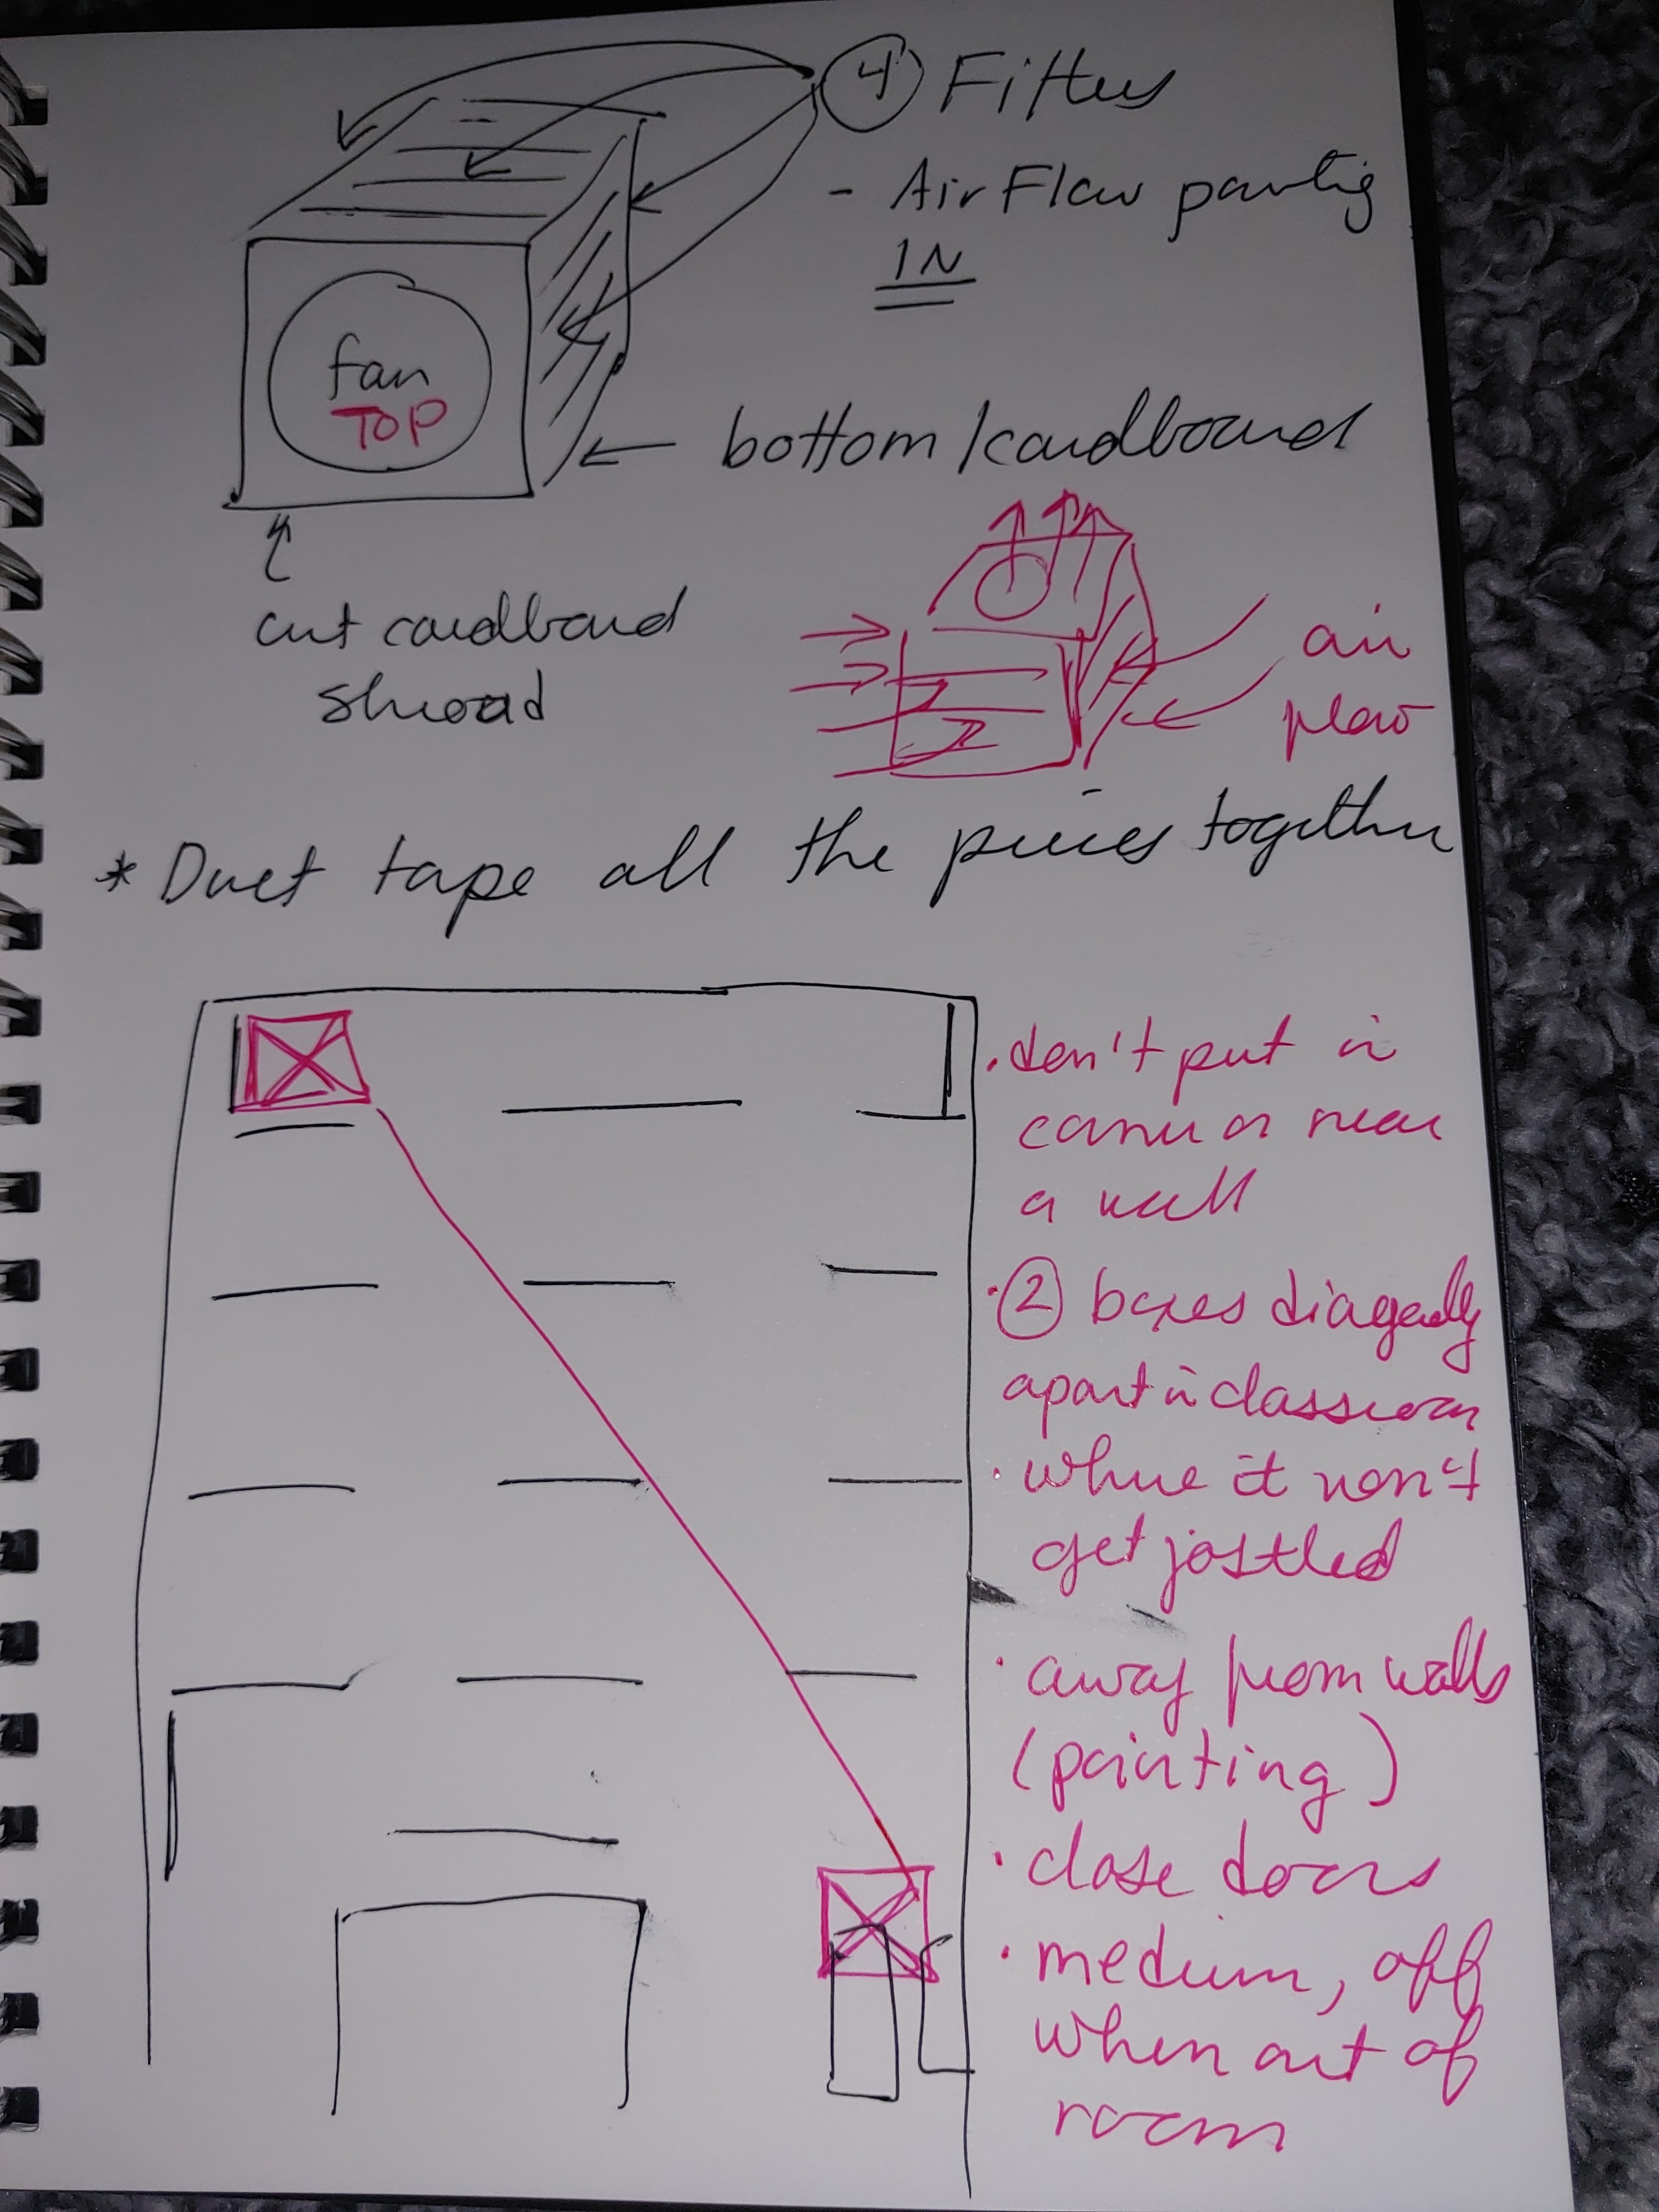 ④ Filters
- AirFlow pointing
IN
fan
TOP
← bottom/cardboard
cut cardboard
shroud
air
flow
* Duct tape all the pieces together
· don't put in
corner or near
a wall
· ② boxes diagonally
apart in classroom
· where it won't
get jostled
· away from walls
(pointing)
· close doors
· medium, off
when out of
room